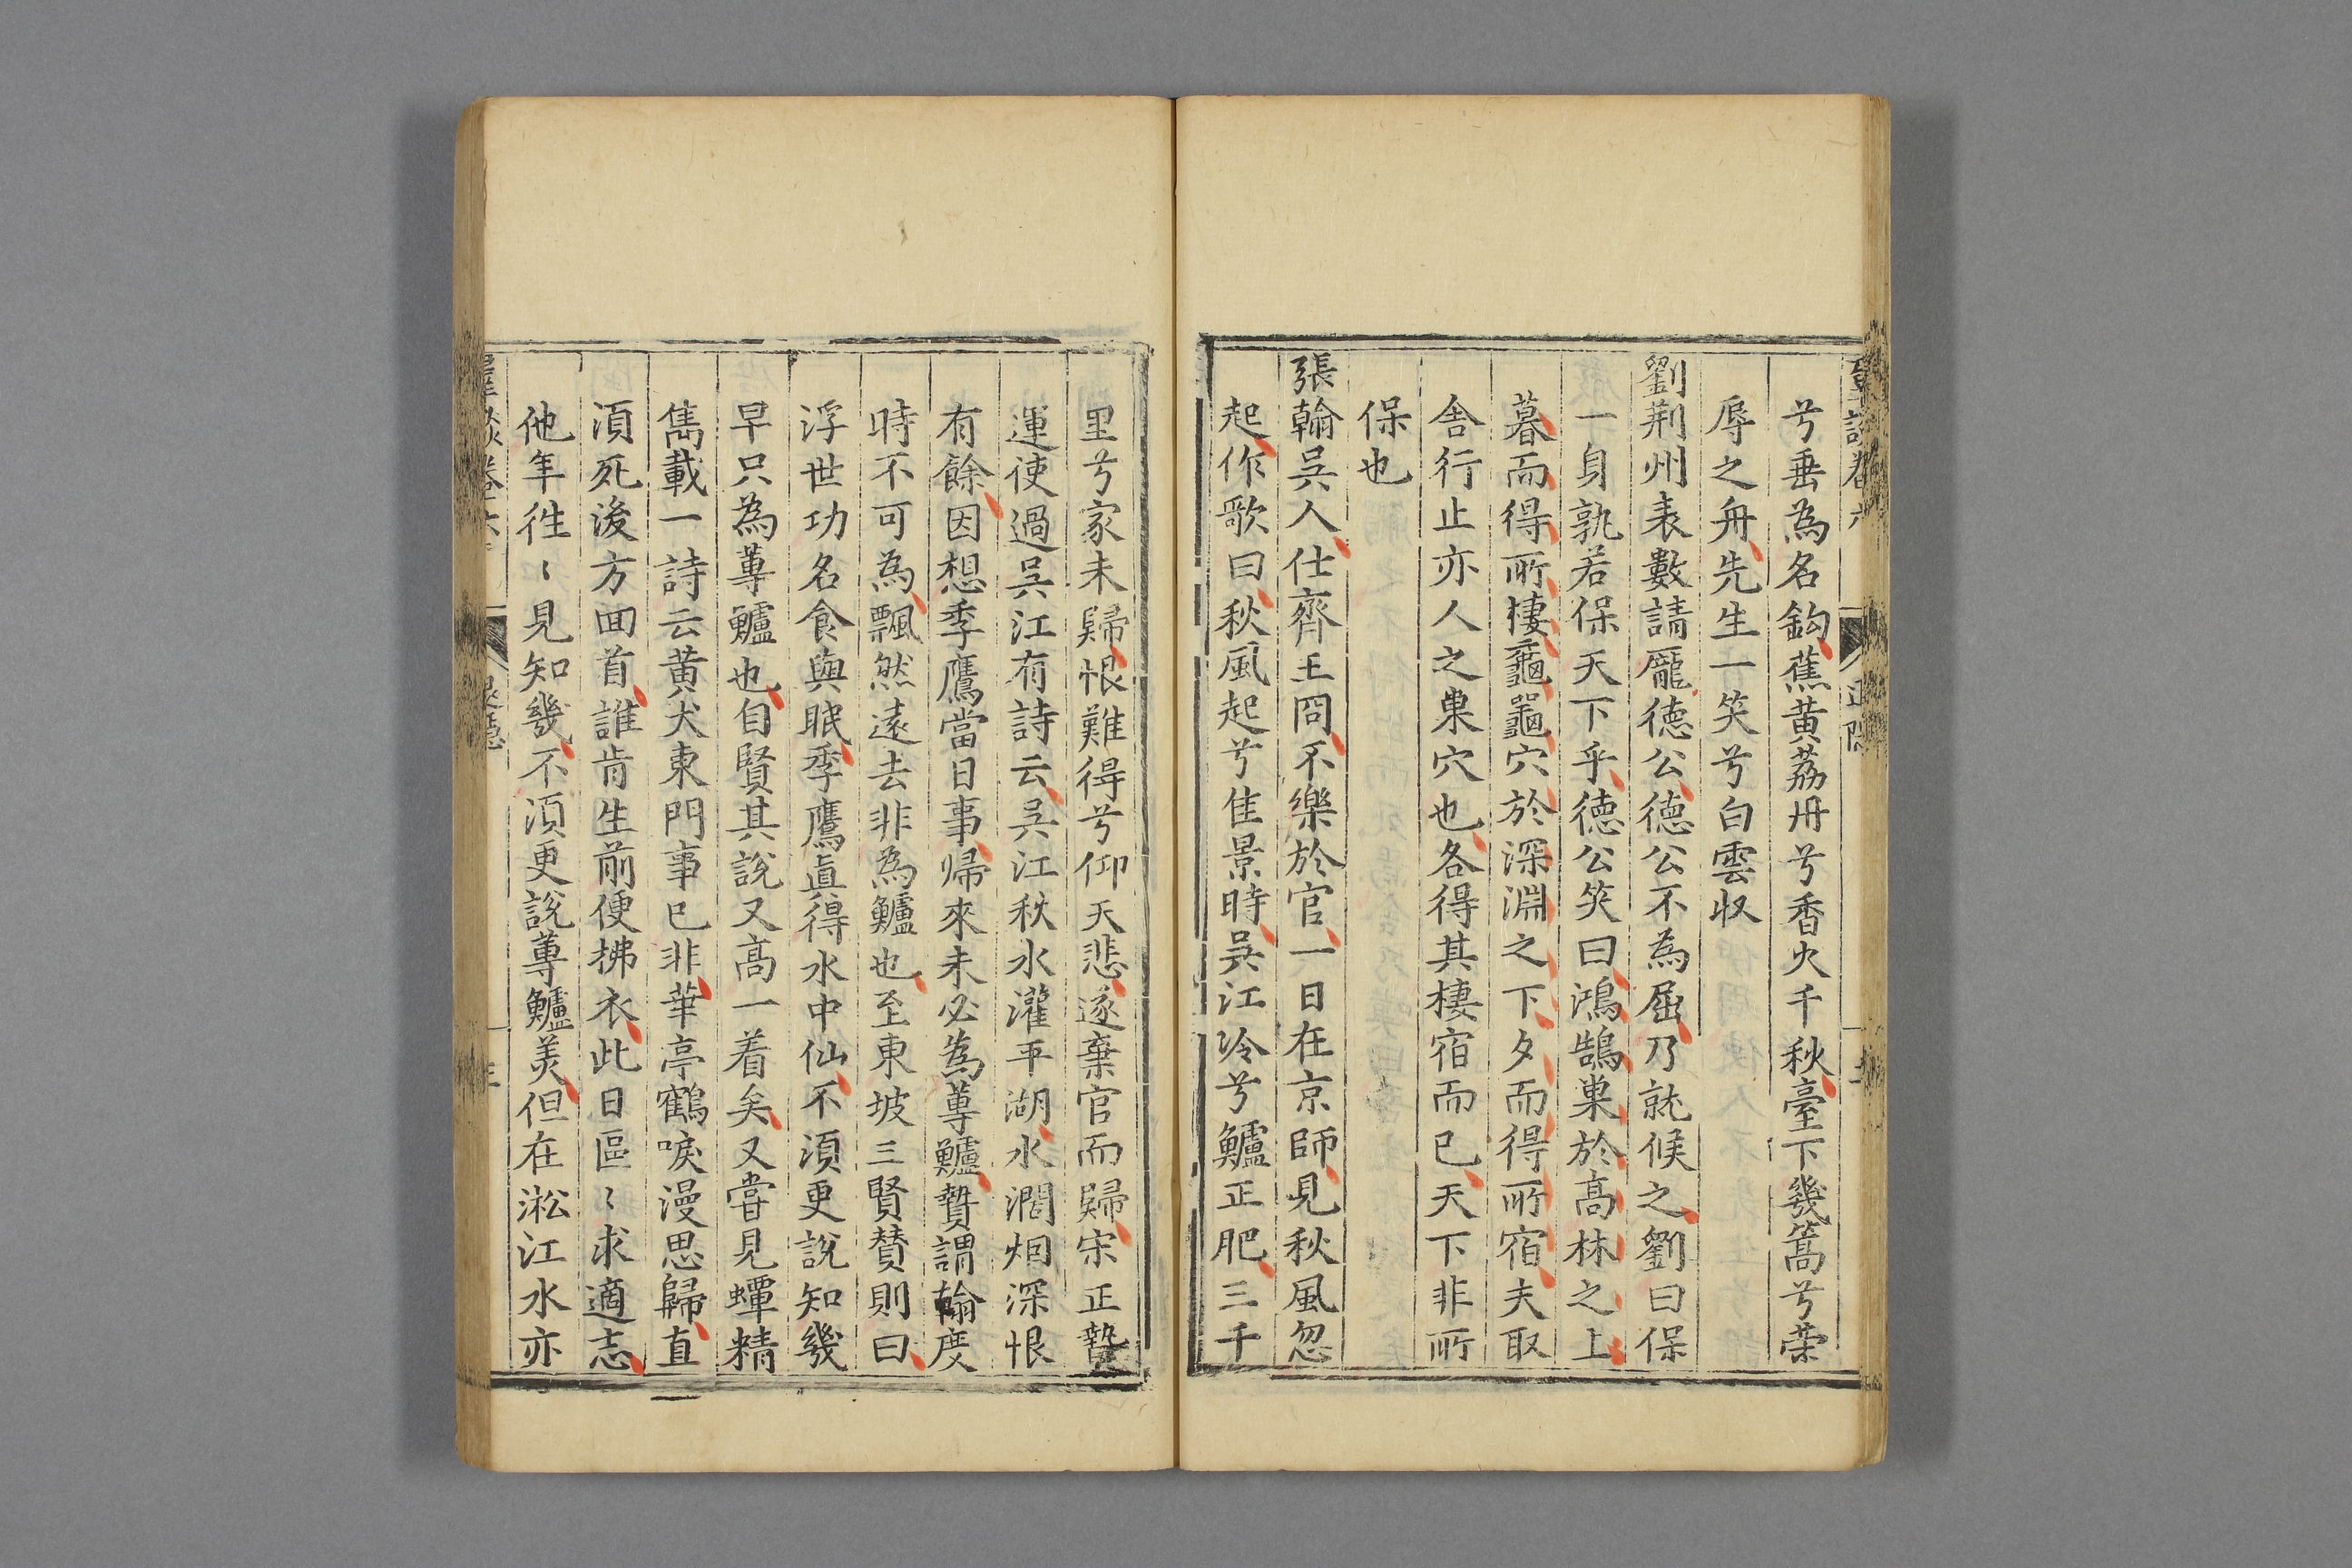 兮垂為名鈎蕉黄荔丹兮香火千秋臺下幾篙兮荣
辱之舟先生一笑兮白雲収
劉荆州表數請龐德公德公不為屈乃就候之劉曰保
一身孰若保天下乎德公笑曰鴻鵠巢於髙林之上
暮而得所棲黿穴於深淵之下夕而得所宿夫取
舎行止亦人之巢穴也各得其棲宿而已天下非所
保也
張翰吴人仕齊王冏不樂於官一日在京師見秋風忽
起作歌曰秋風起兮佳景時吴江冷兮鱸正肥三千
里兮家未歸恨難得兮仰天悲遂棄官而歸宋王贄
運使過吴江有詩云吴江秋水灌平湖水濶烟深恨
有餘因想季鷹當日事帰來未必為蓴鱸贄謂翰度
時不可為飄然遠去非為鱸也至東坡三賢賛則曰
浮世功名食與眠季鷹真得水中仙不湏更説知幾
早只為蓴鱸也自賢其説又髙一着矣又嘗見蟫精
雋載一詩云黄犬東門事已非華亭鶴唳漫思歸直
湏死後方囬首誰肯生前便拂衣此日區〻求適志
他年徃〻見知幾不湏更說蓴鱸美但在淞江水亦